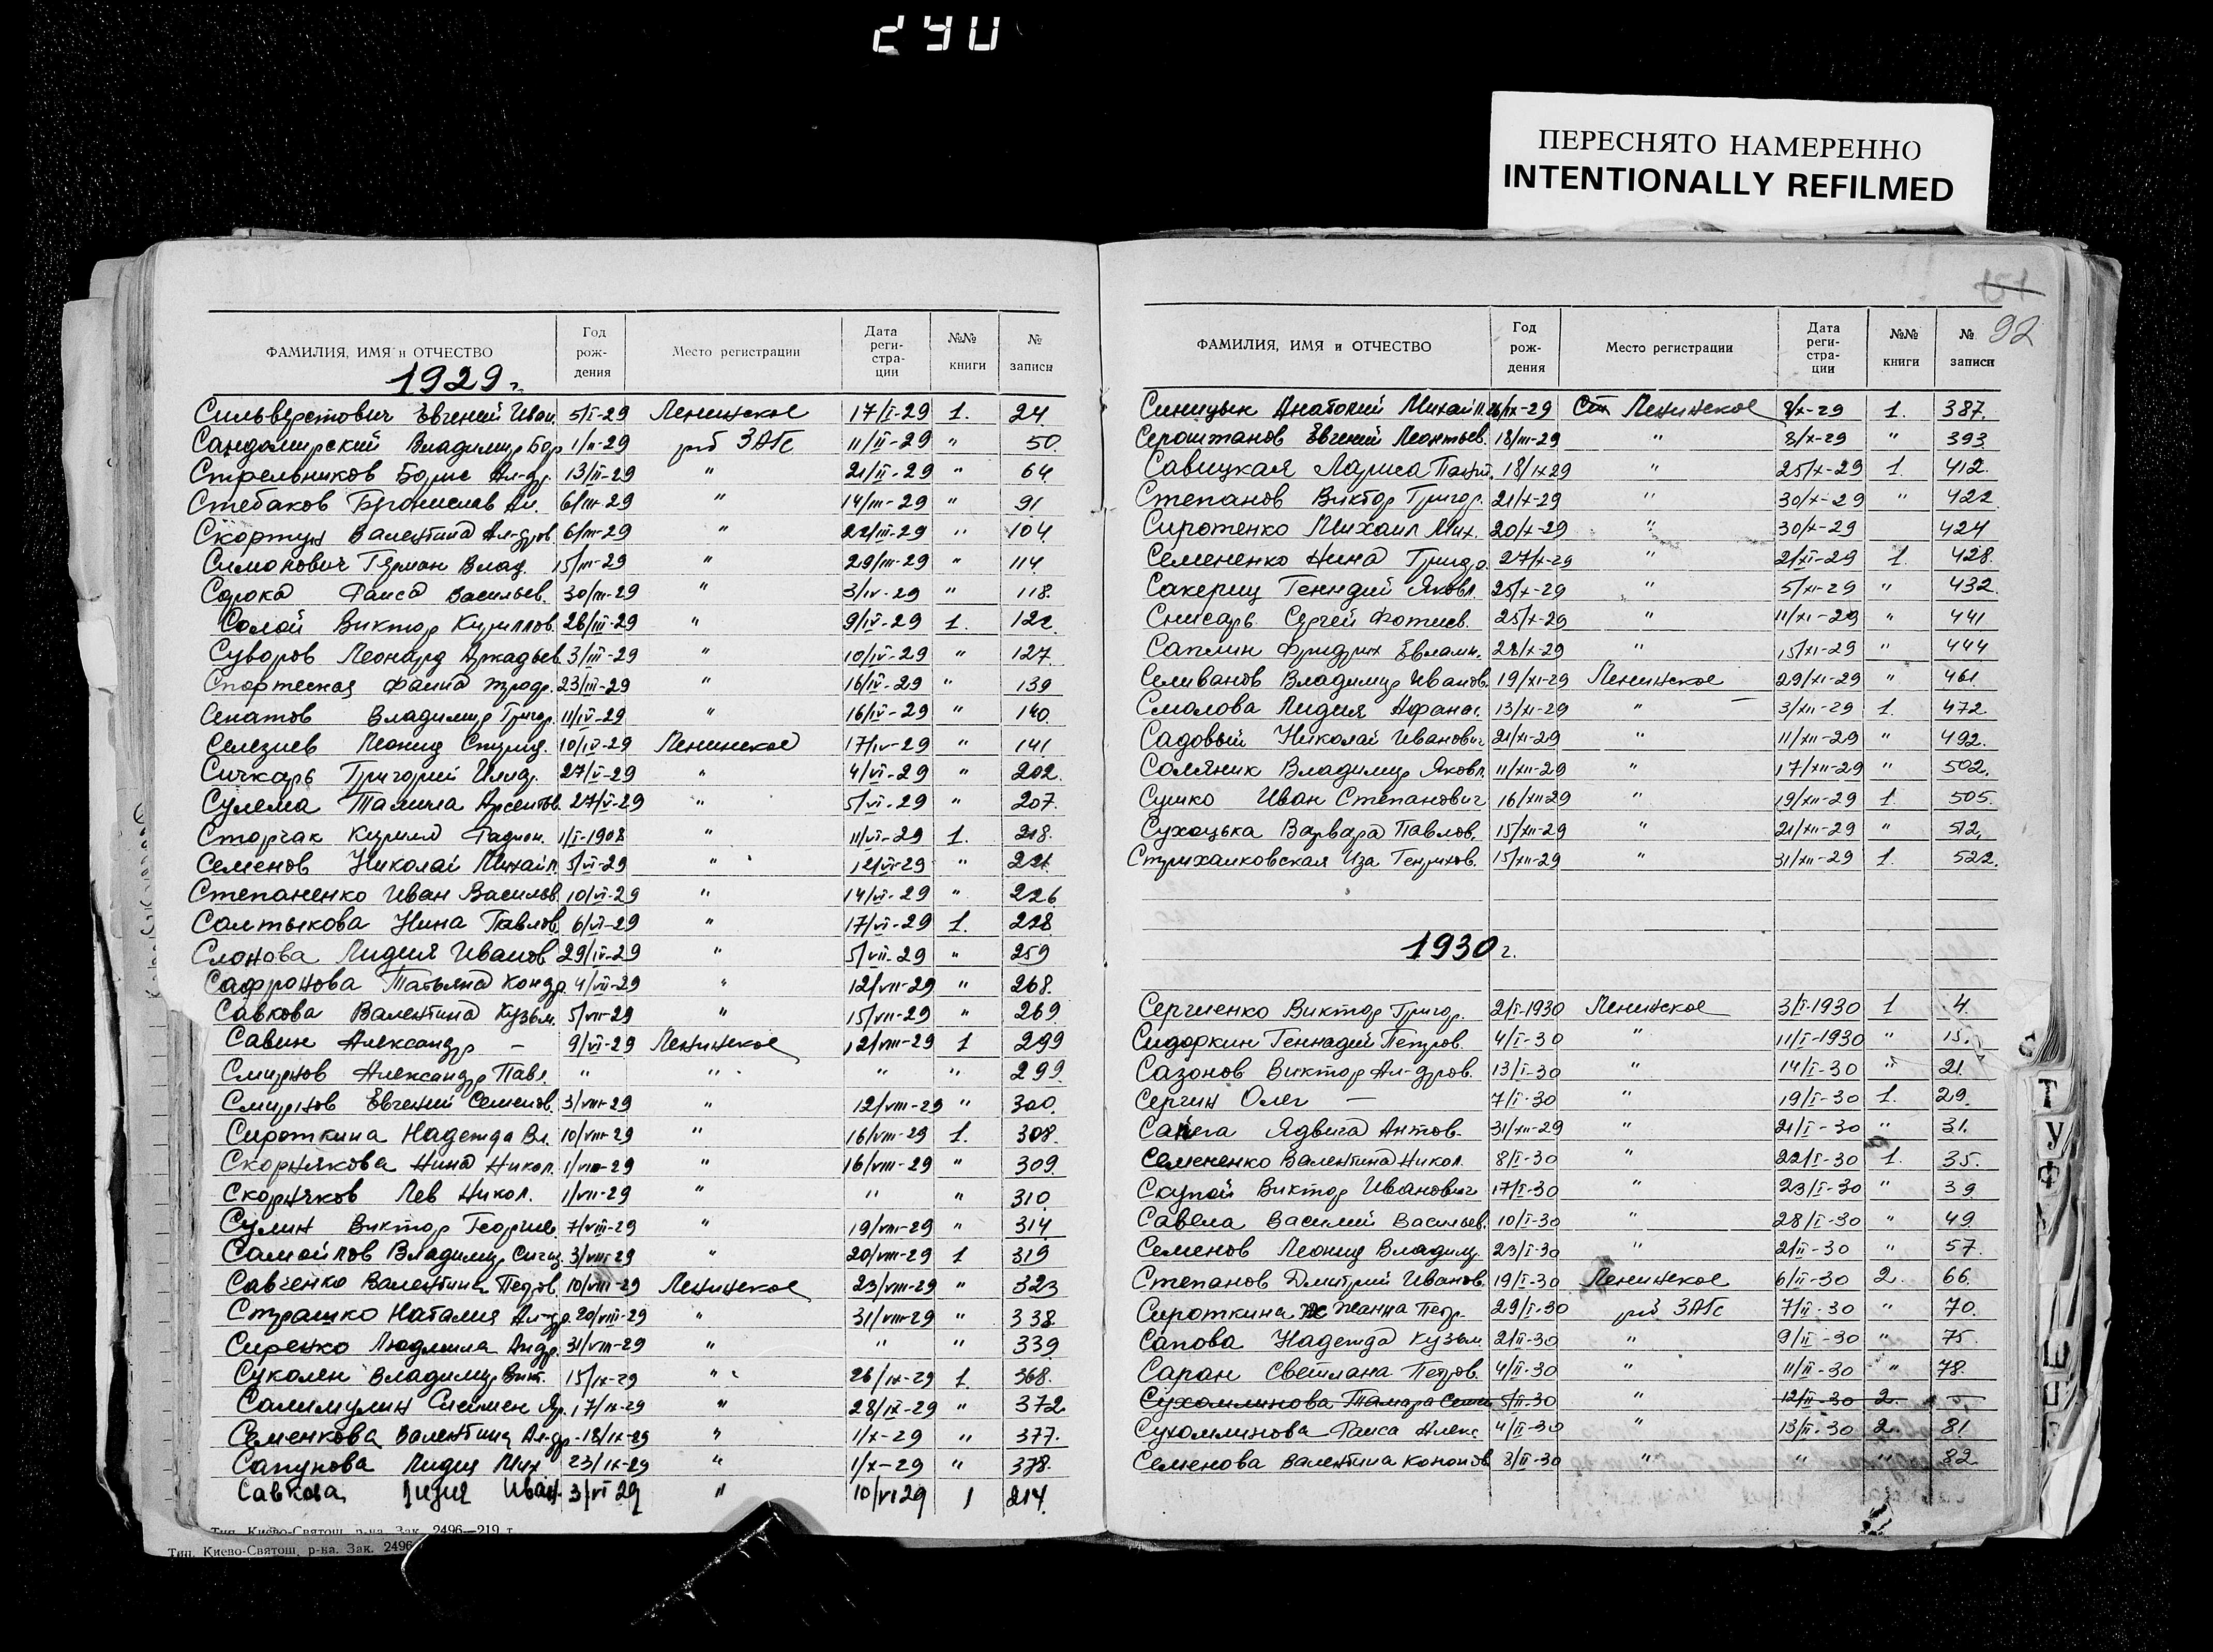 290
ПЕРЕСНЯТО НАМЕРЕННО
INTENTIONALLY REFILMED
ФАМИЛИЯ, ИМЯ и ОТЧЕСТВО Год рож- дения Место регистрации Дата реги- стра- ции №№ книги № записи
1929 г.
Сильверстович Евгений Иван. 5/I-29 Ленинское 17/I-29 1. 24
Сандомирский Владимир Бор 1/II-29 рб ЗАГС 11/II-29 " 50.
Стрельников Борис Ал-др. 13/II-29 " 21/II-29 " 64
Стебаков Бронислав Ал. 6/III-29 " 14/III-29 " 91
Скортун Валентина Ал-дров 6/III-29 " 22/III-29 " 104
Симонович Герман Влад. 15/III-29 " 29/III-29 " 114
Сорока Раиса Васильев. 30/III-29 " 3/IV-29 " 118.
Солой Виктор Кириллов. 28/III-29 " 9/IV-29 1. 122
Суворов Леонард Аркадьев 3/III-29 " 10/IV-29 " 127
Фаина 23/III-29 " 16/IV-29 " 139
Сенатов Владимир Григор. 11/IV-29 " 16/IV-29 " 140.
Селезнев Леонид Спирид. 10/IV-29 Ленинское 17/IV-29 " 141
Сичкарь Григорий 27/V-29 " 4/VI-29 " 202.
Сулема Тамила Арсентьев. 27/V-29 " 5/VI-29 " 207.
Сторчак Кирилл Радион. 1/I-1908 " 11/VI-29 1. 218.
Семенов Николай Михайл. 5/VI-29 " 12/VI-29 " 221.
Степаненко Иван Васильев. 10/VI-29 " 14/VI-29 " 226
Салтыкова Нина Павлов. 6/VI-29 " 17/VI-29 1. 228
Слонова Лидия Иванов 29/IV-29 " 5/VII-29 " 259
Сафронова Татьяна Кондр. 4/VII-29 " 12/VII-29 " 268.
Савкова Валентина Кузьм. 5/VII-29 " 15/VII-29 " 269
Савин Александр — 9/VI-29 Ленинское 12/VIII-29 1 299
Смирнов Александр Павл. " " " " 299.
Смирнов Евгений Семенов. 3/VIII-29 " 12/VIII-29 " 300.
Сироткина Надежда Вл. 10/VIII-29 " 16/VIII-29 1. 308.
Скорнякова Нина Никол. 1/VIII-29 " 16/VIII-29 " 309.
Скорняков Лев Никол. 1/VII-29 " " " 310
Сулин Виктор Георгиев. 7/VIII-29 " 19/VIII-29 " 314
Самойлов Владимир 3/VIII-29 " 20/VIII-29 1 319
Савченко Валентина Петров. 10/VIII-29 Ленинское 23/VIII-29 " 323
Страшко Наталия Ал-др. 20/VIII-29 " 31/VIII-29 " 338
Сиренко Людмила Андр. 31/VIII-29 " " " 339
Суколен Владимир Викт. 15/IX-29 " 26/IX-29 1. 368.
Салимулин 17/IX-29 " 28/IX-29 " 372.
Семенкова Валентина Ал-др. 18/IX-29 " 1/X-29 " 377.
Сапунова Лидия Мих 23/IX-29 " 1/X-29 " 378.
Савкова Лидия Иван. 3/VI 29 " 10/VI 29 1 214.
Тип. Киево-Святош. р-на. Зак. 2496—219 т.
Тип. Киево-Святош. р-на. Зак. 2496
151
92
ФАМИЛИЯ, ИМЯ и ОТЧЕСТВО Год рож- дения Место регистрации Дата реги- стра- ции №№ книги № записи
Синицык Анатолий Михайл. 26/IX-29 Ленинское 8/X-29 1. 387.
Сероштанов Евгений Леонтьев. 18/III-29 " 8/X-29 " 393
Савицкая Лариса 18/IX 29 " 25/X-29 1. 412.
Степанов Виктор Григор. 21/X-29 " 30/X-29 " 422
Сиротенко Михаил Мих. 20/X-29 " 30/X-29 424
Семененко Нина Григор. 27/X-29 " 2/XI-29 1. 428.
Сакериц Геннадий Яковл. 25/X-29 " 5/XI-29 " 432.
Снисарь Сергей Фотиев. 25/X-29 " 11/XI-29 " 441
Саплин Фридрих Евлами. 28/X-29 " 15/XI-29 " 444
Селиванов Владимир Иванов. 19/XI-29 Ленинское 29/XI-29 " 461.
Смолова Лидия Афанас. 13/XI-29 " 3/XII-29 1. 472.
Садовый Николай Иванович 21/XI-29 " 11/XII-29 " 492.
Соляник Владимир Яковл. 11/XII-29 " 17/XII-29 " 502.
Сушко Иван Степанович 16/XII 29 " 19/XII-29 1. 505.
Сухоцька Варвара Павлов. 15/XII-29 " 21/XII-29 " 512.
Стрихалковская Иза Генрихов. 15/XII-29 " 31/XII-29 1. 522.
1930 г.
Сергиенко Виктор Григор. 2/I-1930 Ленинское 3/I-1930 1 4.
Сидоркин Геннадий Петров. 4/I-30 " 11/I-1930 " 15.
Сазонов Виктор Ал-дров. 13/I-30 " 14/I-30 " 21.
Сергин Олег — 7/I-30 " 19/I-30 1. 29.
Сапега Ядвига Антов. 31/XII-29 " 21/I-30 " 31.
Семененко Валентина Никол. 8/I-30 " 22/I-30 1. 35.
Скупой Виктор Иванович 17/I-30 " 23/I-30 " 39
Савела Василий Васильев. 10/I-30 " 28/I-30 " 49.
Семенов Леонид Владим. 23/I-30 " 2/II-30 " 57.
Степанов Дмитрий Иванов. 19/I-30 Ленинское 6/II-30 2. 66.
Сироткина Жанна Петр. 29/I-30 рб ЗАГС 7/II-30 " 70.
Сапова Надежда Кузьм. 2/II-30 " 9/II-30 " 75.
Саран Светлана Петров. 4/II-30 " 11/II-30 " 78.
Сухомлинова Тамара 5/II-30 " 12/II-30 2.
Сухомлинова Раиса Алекс 4/II-30 " 13/II-30 2. 81
Семенова Валентина Кононов. 8/II-30 " " " 82
С
Т
У
Ф
Ш
Щ